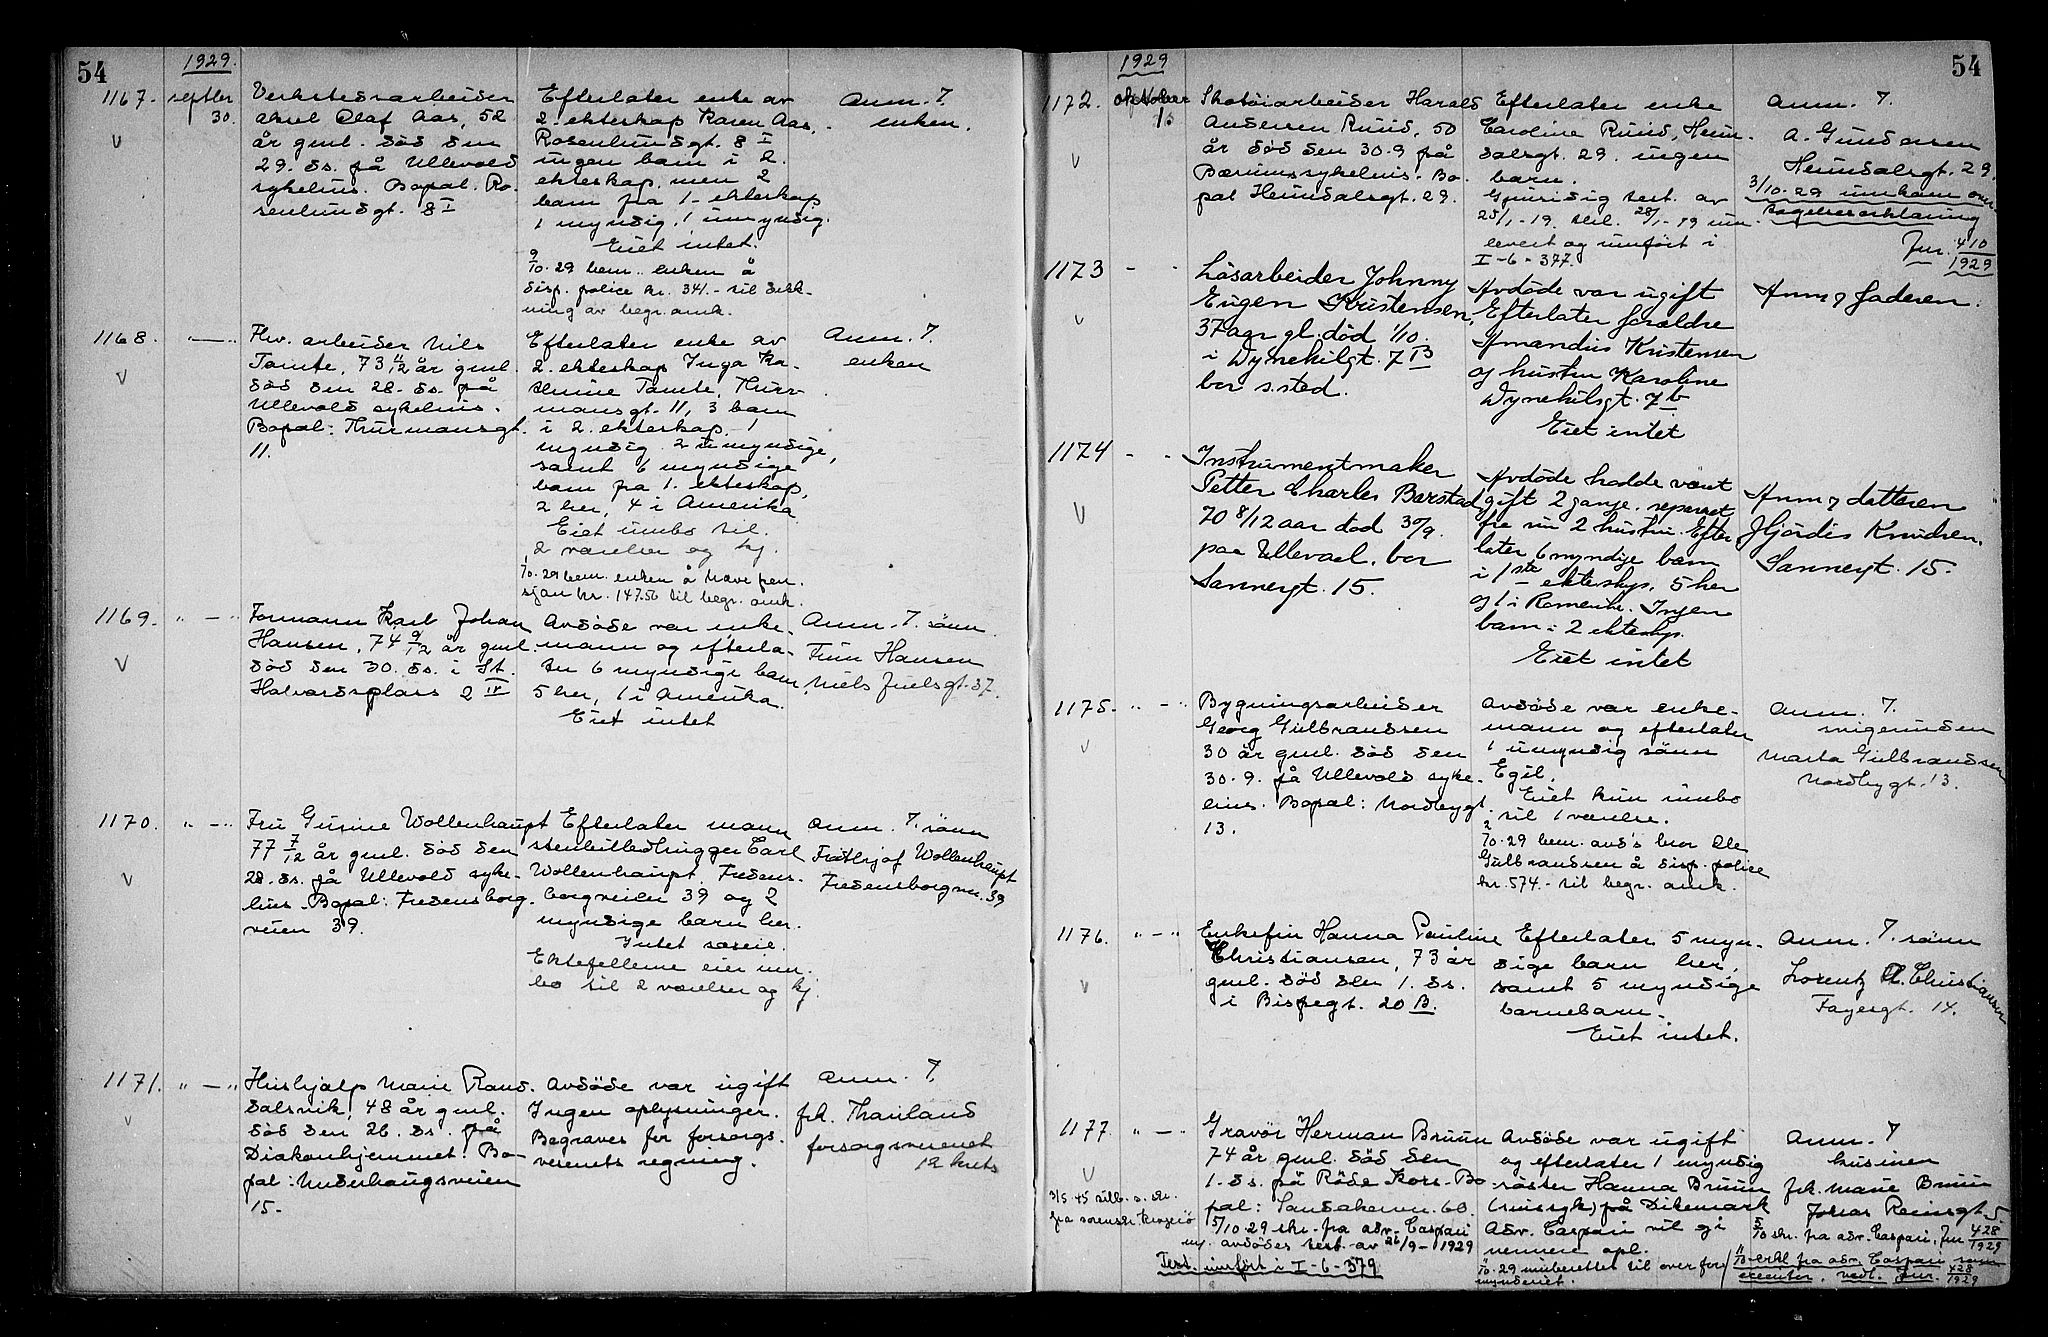 54
1929.
1167. septber 30.
Verkstedsarbeider
Aksel Olaf Aas, 52
år gml. död den
29. ds. på Ullevold
sykehus. Bopal. Ro-
senlundsgt. 8 I
Efterlater enke av
2. ekteskap Karen Aas,
Rosenlundsgt. 8 I
ingen barn i 2.
ekteskap, men 2
barn fra 1. ekteskap
1 myndig, 1 umyndig.
Eiet intet.
9/10.29 bem. enken å
disp. police kr. 341.- til dekk-
ning av begr. omk.
Anm. 7.
enken.
1168. " — "
Fhv. arbeider Nils
Tamte, 73 11/12 år gml.
död den 28. ds. på
Ullevold sykehus.
Bopal: Thurmansgt.
11.
Efterlater enke av
2. ekteskap Inga Ka-
thrine Tamte, Thur-
mansgt. 11, 3 barn
i 2. ekteskap, 1
myndig 2 umyndige,
samt 6 myndige
barn fra 1. ekteskap,
2 her, 4 i Amerika.
Eiet innbo til
2 værelser og kj.
/10.29 bem. enken å hæve pen-
sjon kr. 147.56 til begr. omk.
Anm. 7.
enken
1169. " — "
Formann Karl Johan
Hansen, 74 9/12 år gml.
död den 30. ds. i St.
Halvardsplass 2 IV
Avdöde var enke-
mann og efterla-
ter 6 myndige barn,
5 her, 1 i Amerika.
Eiet intet
Anm. 7. sönn
Finn Hansen
Niels Juelsgt. 37.
1170. " — "
Fru Gusine Wollenhaupt
77 7/12 år gml. död den
28. ds. på Ullevold syke-
hus. Bopal: Fredensborg-
veien 39.
Efterlater mann
stenbilledhugger Carl
Wollenhaupt, Fredens-
borgveien 39 og 2
myndige barn her.
Intet særeie.
Ektefellerne eier inn-
bo til 2 værelser og kj.
Anm. 7. sönn
Fridtjof Wollenhaupt
Fredensborgvn. 39
1171. " — "
Hushjalp Marie Rand-
dalsvik, 48 år gml.
död den 26. ds. på
Diakonhjemmet. Bo-
pal: Underhaugsveien
15.
Avdöde var ugift
Ingen oplysninger.
Begraves for forsorgs-
vesenets regning.
Anm. 7.
frk. Thauland
forsorgsvesenet
12 krets
54
1929
1172. oktober 1.
Skotöiarbeider Harald
Andersen Ruud, 50
år död den 30.9 på
Bærum sykehus. Bo-
pal Heimdalsgt. 29.
Efterlater enke
Caroline Ruud, Heim-
dalsgt. 29. ingen
barn.
Gjensidig test. av
25/1-19. til. 28/1-19 inn-
levert og innfört i
I-6-377.
Anm. 7.
A. Gundersen
Heimdalsgt. 29.
3/10.29 innkom over-
tagelseserklæring
Jnr. 410/1929
1173 - "
Lösarbeider Johnny
Eugen Kristensen,
37 aar gl. död 1/10.
i Dynekilgt. 7 B
bor s. sted.
Avdöde var ugift
Efterlater forældre
Amandus Kristensen
og hustru Karoline
Dynekilsgt. 7b
Eiet intet
Anm. 7 faderen.
1174 - "
Instrumentmaker
Petter Charles Barstad
70 8/12 aar död 30/9.
paa Ullevaal. bor
Sannergt. 15.
Avdöde hadde vært
gift 2 gange. separert
fra sin 2 hustru. Efter-
later 6 myndige barn
i 1ste ekteskap, 5 her
og 1 i Romerike. Ingen
barn i 2 ekteskap.
Eiet intet
Anm 7 datteren
Hjördis Knudsen.
Sannergt. 15.
1175. " — "
Bygningsarbeider
Georg Gulbrandsen
30 år gml. död den
30.9. på Ullevold syke-
hus. Bopal: Nordbygt.
13.
Avdöde var enke-
mann og efterlater
1 umyndig sönn
Egil.
Eiet kun innbo
til 1 værelse.
2/10.29 bem. avd's bror Ole
Gulbrandsen å disp. police
kr. 574.- til begr. omk.
Anm. 7.
svigerinden
Marta Gulbrandsen
Nordbygt. 13.
1176. " — "
Enkefru Hanna Pauline
Christiansen, 73 år
gml. död den 1. ds.
i Bispegt. 20 B.
Efterlater 5 myn-
dige barn her,
samt 5 myndige
barnebarn.
Eiet intet.
Anm. 7. sönn
Lorentz A. Christiansen
Fayesgt. 14.
1177. " — "
Gravör Herman Bruun
74 år gml. död den
1. ds. på Röde Kors. Bo-
pal: Sandakervn. 60.
5/10 29 skr. fra adv. Caspari
m. avdödes test. av 26/9-1929
Test. innfört i I-6-379
3/5 45 utlb. s. skr.
fra sorenskr. Kragerö
Avdöde var ugift
og efterlater 1 myndig
söster Hanna Bruun
(sinnssyk) på Dikemark
Adv. Caspari vil gi
nærmere opl.
/10.29 innberettet til overfor-
mynderiet.
Anm. 7
kusinen
frk. Marie Bruun
Jonas Reinsgt. 5
5/10 skr. fra adv. Caspari, Jnr 428/1929
11/10 erkl fra adv. Caspari som
executor, vedl. Jnr. 428/1929